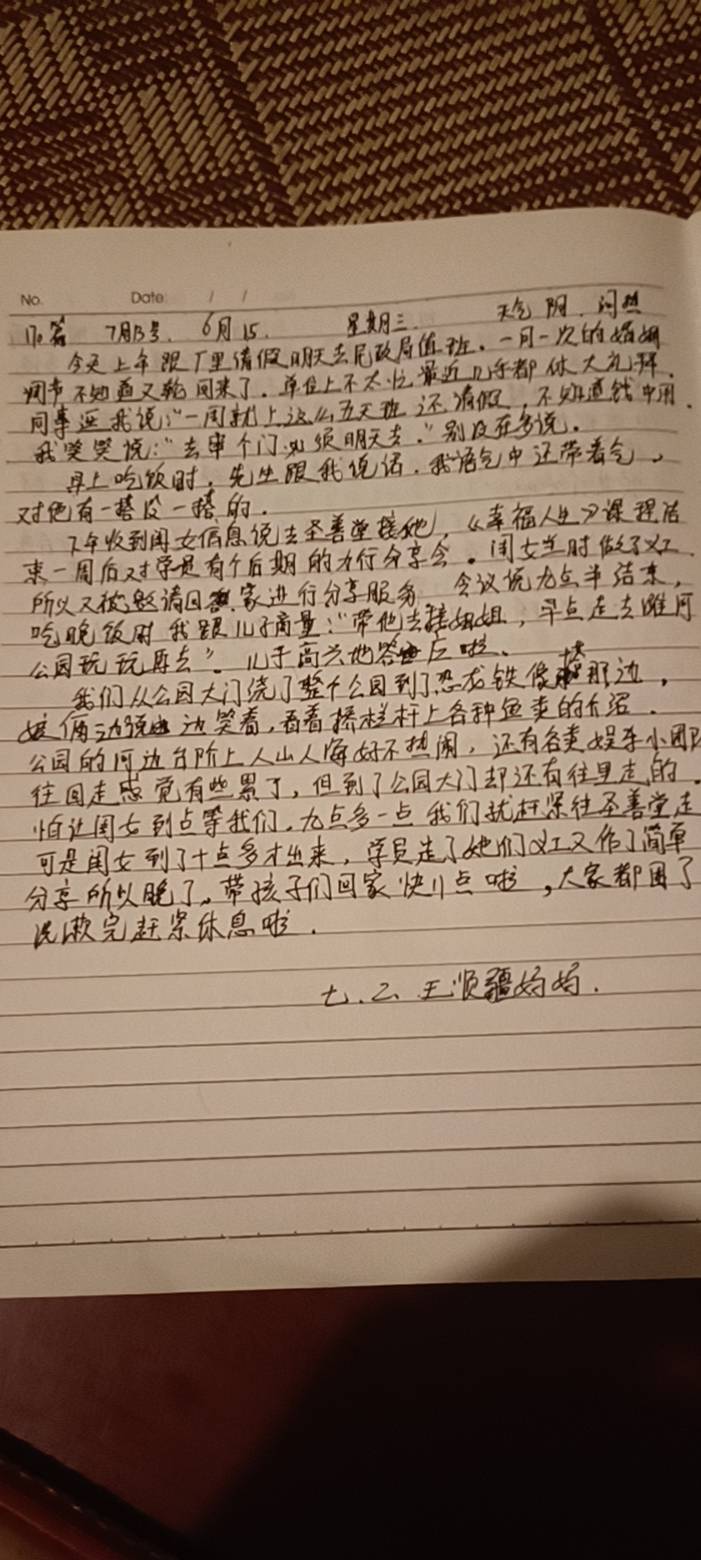 No. Date / /
7月13号. 6月15. 星期三. 天气 阴. 闷热
今天上午跟厂里请假明天去民政局值班. 一月一次的婚姻
调节不知道又轮回来了. 单位上不太忙最近几乎都休大礼拜.
同事逗我说:"一周就上这么五天班还请假, 不知道钱中用.
我笑笑说:"去串个门必须明天去." 别没在多说.
早上吃饭时, 先生跟我说话. 我语气中还带着气,
对他有一搭没一搭的.
下午收到闺女信息说去圣善堂接她, 《幸福人生》课程结
束一周后对学员有个后期的力行分享会. 闺女当时做了义工.
所以又被邀请回家进行分享服务 会议说九点半结束,
吃晚饭时我跟儿子商量:"带他去接姐姐, 早点走去潍河
公园玩玩再去". 儿子高兴地答应啦.
我们从公园大门绕了整个公园到了恐龙铁像那边,
娘俩边说边笑着, 看看桥栏杆上各种鱼类的介绍.
公园的河边台阶上人山人海好不热闹, 还有各类娱乐小团队
往回走感觉有些累了, 但到了公园大门却还有往里走的.
怕让闺女到点等我们. 九点多一点我们就赶紧往圣善堂走
可是闺女到了十点多才出来, 学员走了她们义工又作了简单
分享所以晚了. 带孩子们回家快11点啦, 大家都困了
洗漱完赶紧休息啦.
七.二 王顺疆妈妈.